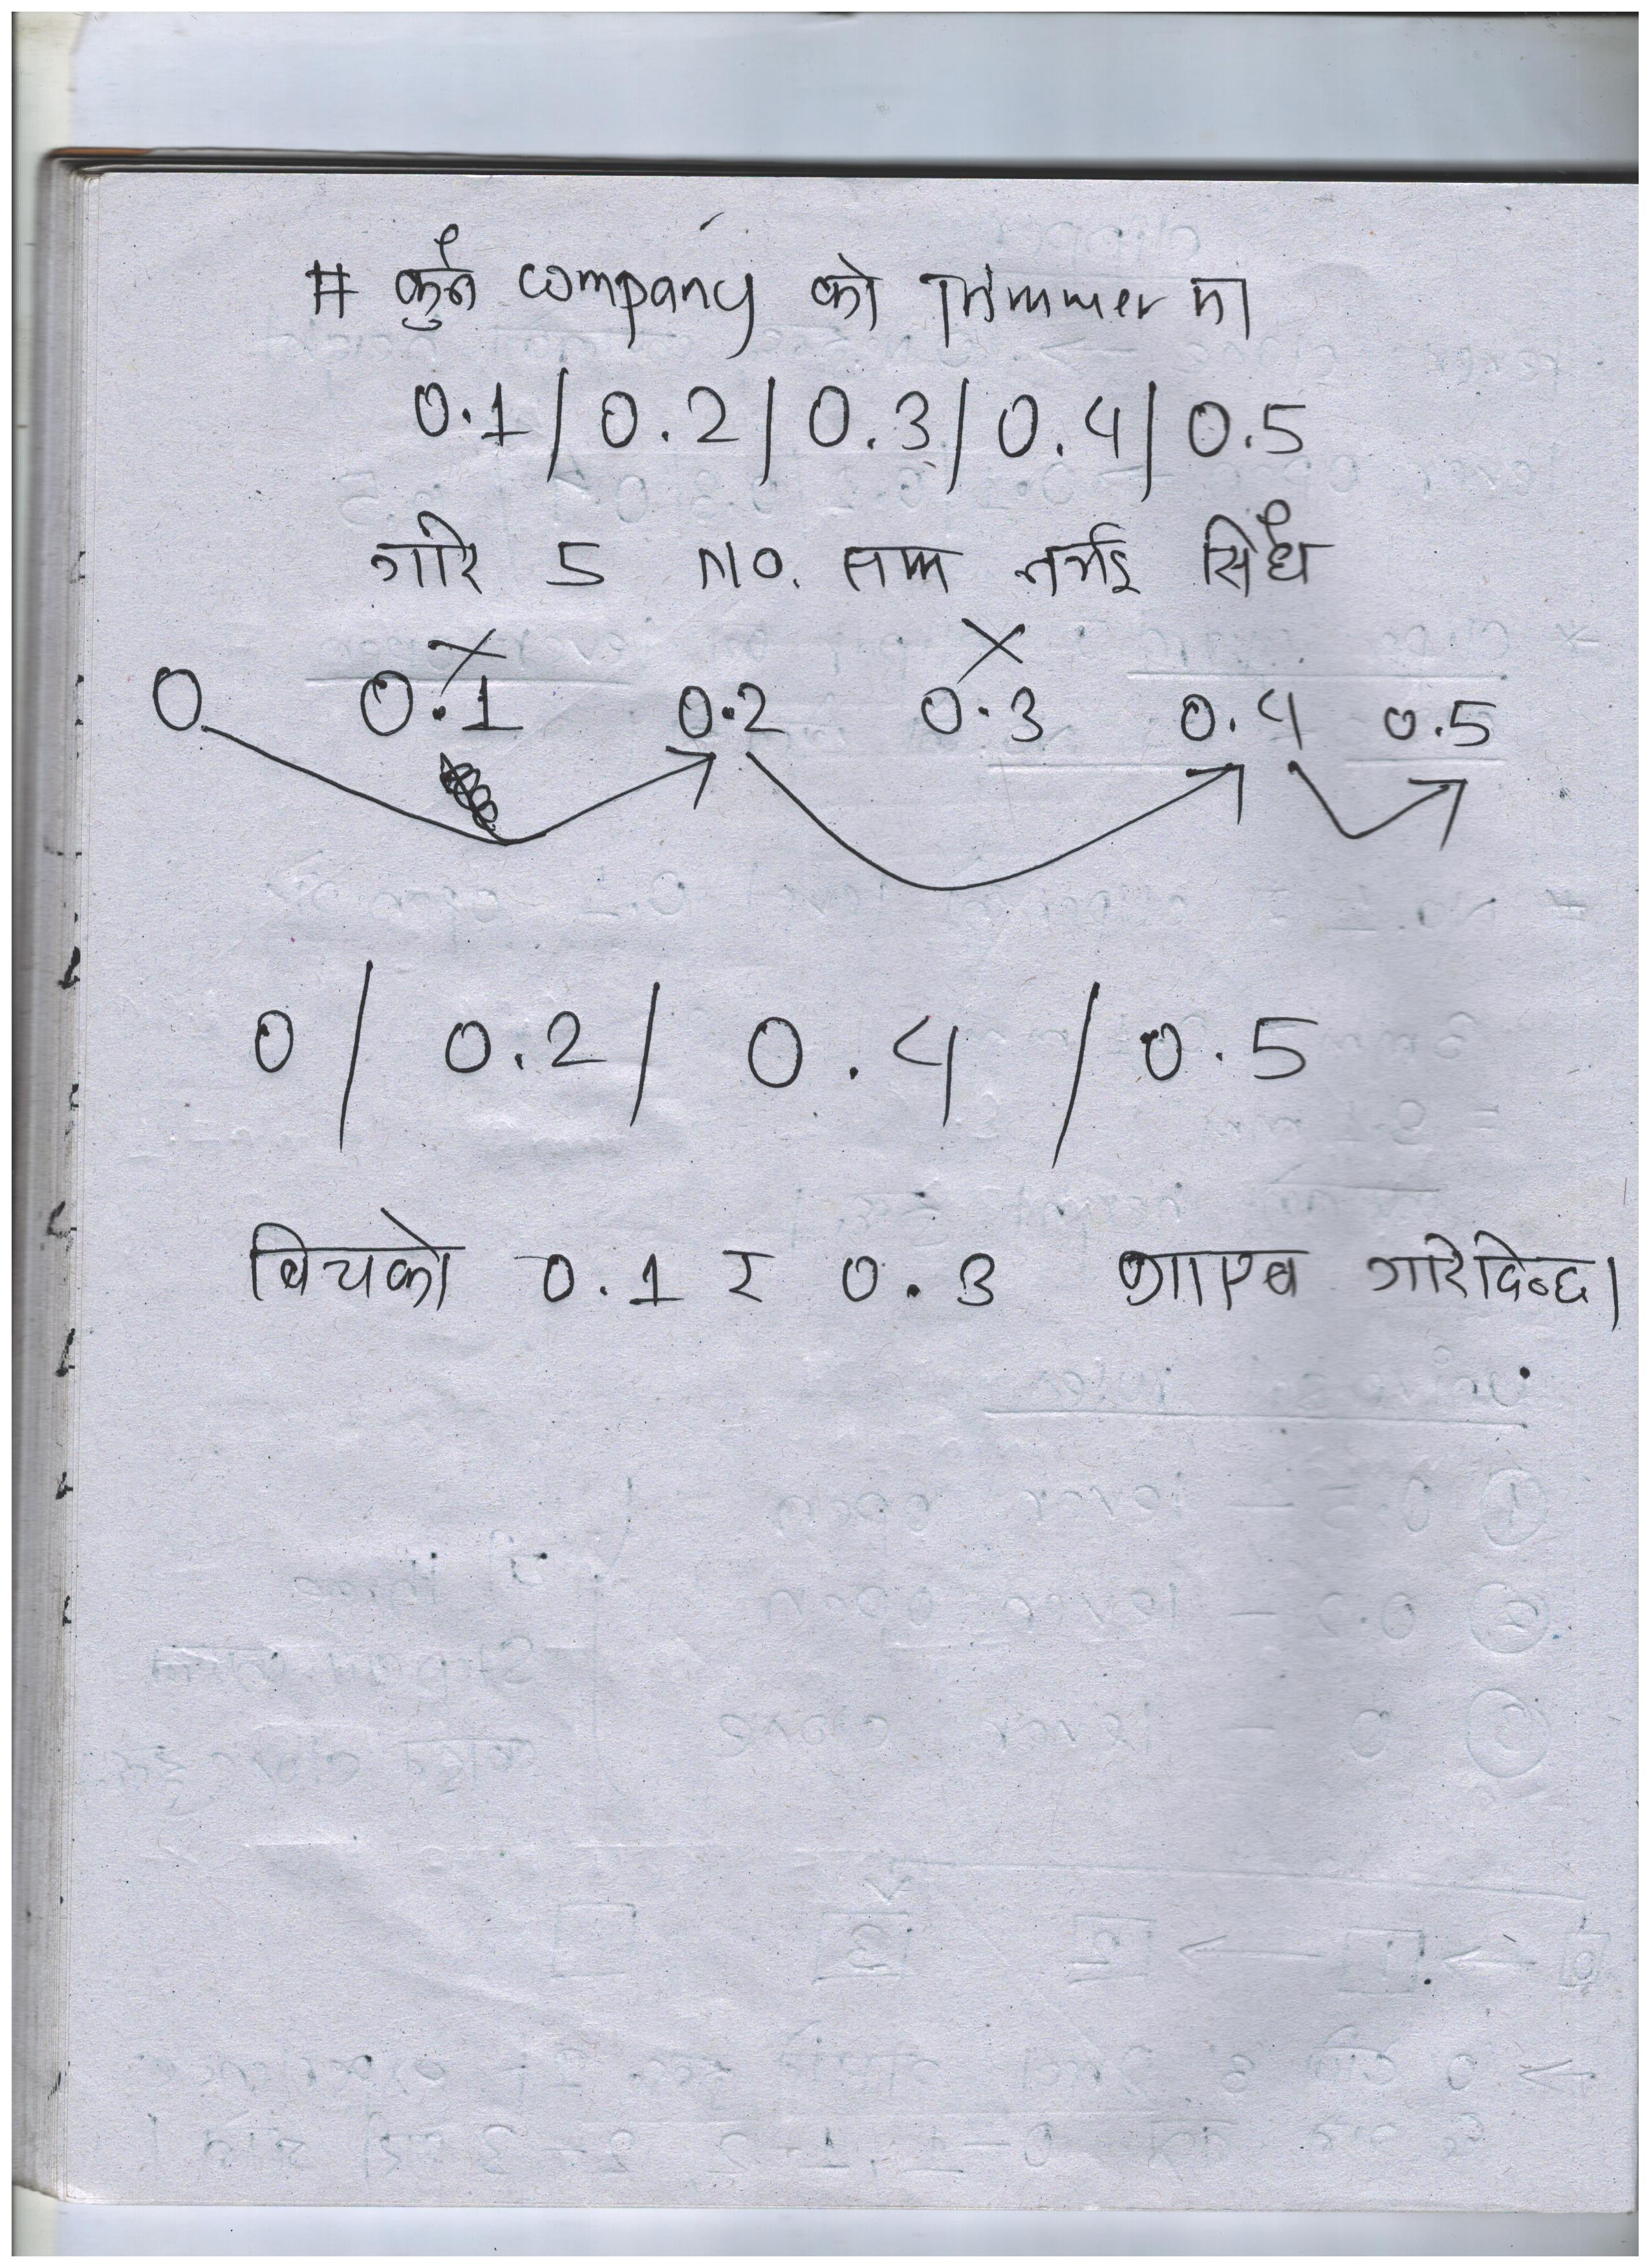 # कुनै company को Trimmer मा
0.1 / 0.2 / 0.3 / 0.4 / 0.5
गरि 5 NO. सम्म नभई सिधै
× ×
0 0.1 0.2 0.3 0.4 0.5
0 / 0.2 / 0.4 / 0.5
बिचको 0.1 र 0.3 गाएब गरिदिन्छ।